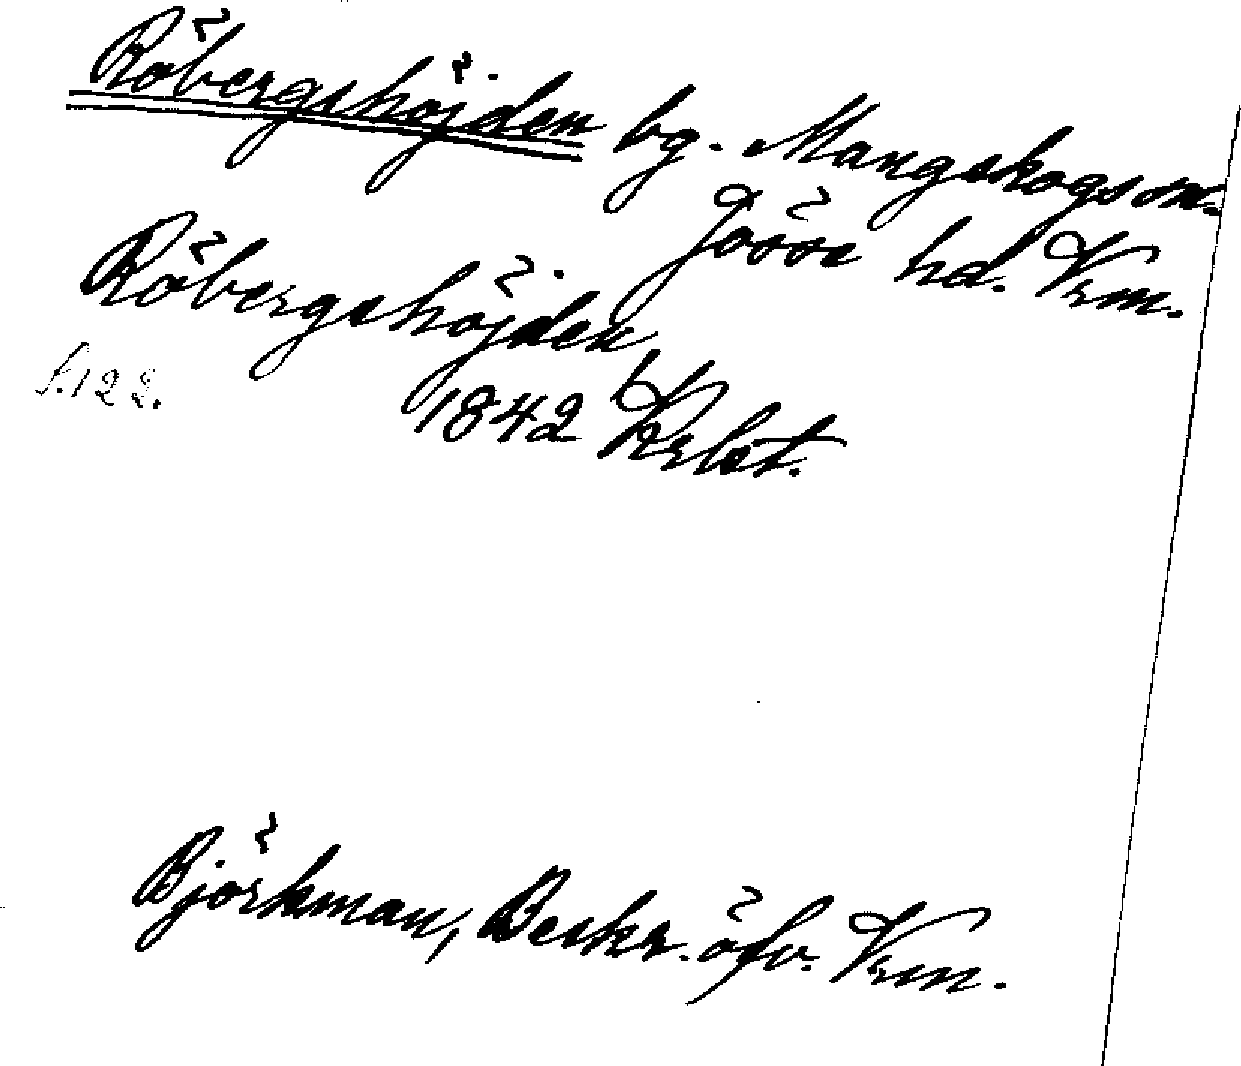 Röbergshöjden bg. Mangskogs sn.
Jösse hd. Vrm.
Röbergshöjden
s. 122.
1842 Krlst.
Björkman, Beskr. öfv. Vrm.